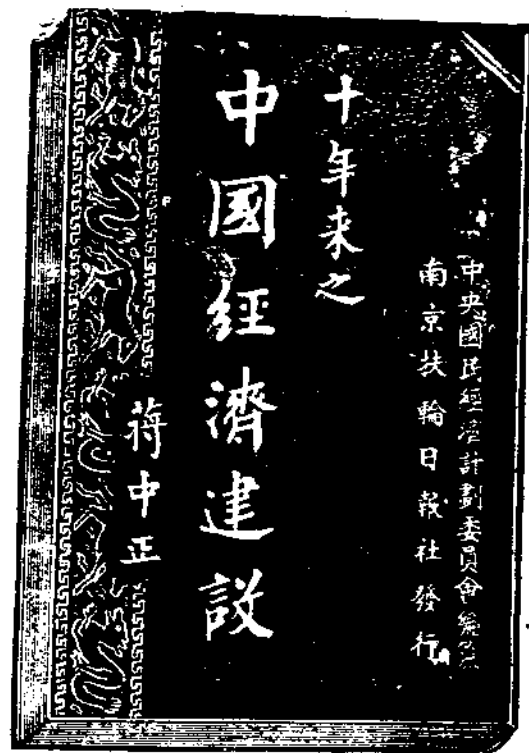 中央國民經濟計劃委員會編
南京扶輪日報社發行
十年来之
中國經濟建設
蔣中正